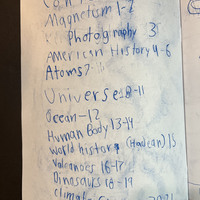 Magnetism 1-2
Photography 3
American History 4-6
Atoms 7-
Universe 8-11
Ocean-12
Human Body 13-14
World history (Hadean) 15
Volcanoes 16-17
Dinosaurs 18-19
Climate